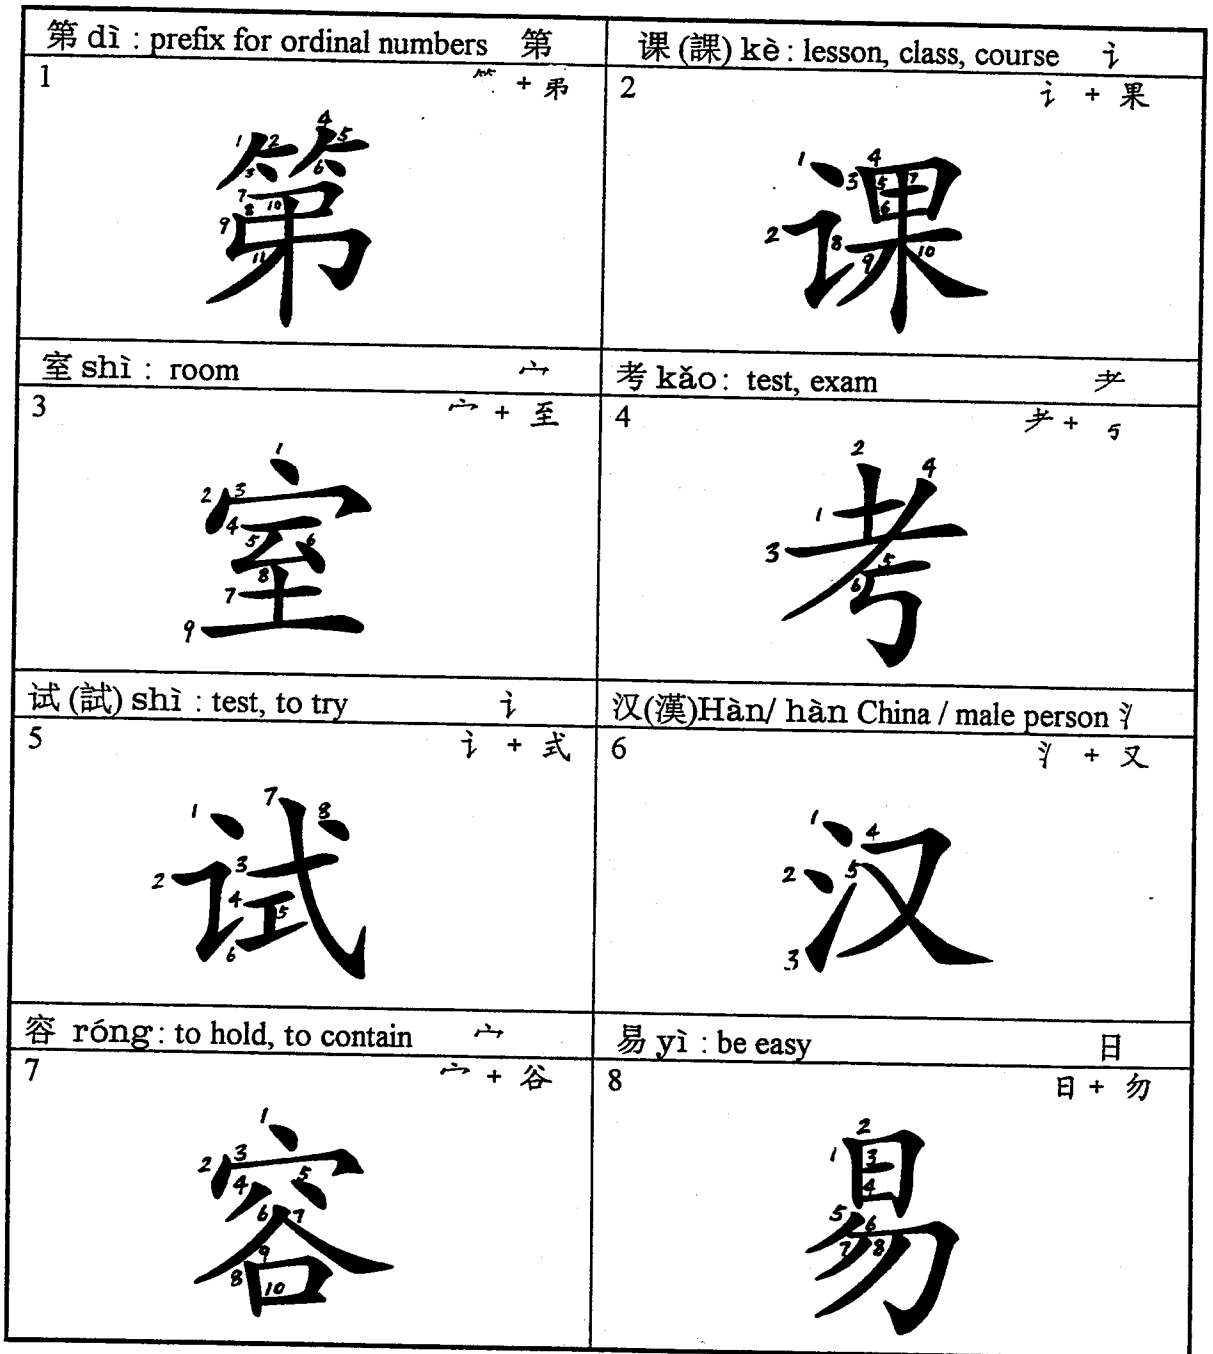 第 dì : prefix for ordinal numbers 第
1 ⺮ + 弟
1 2 3 4 5 6 7 8 9 10 11
第
课 (課) kè : lesson, class, course 讠
2 讠 + 果
1 2 3 4 5 6 7 8 9 10
课
室 shì : room 宀
3 宀 + 至
1 2 3 4 5 6 7 8 9
室
考 kǎo : test, exam 耂
4 耂 + 丂
1 2 3 4 5 6
考
试 (試) shì : test, to try 讠
5 讠 + 式
1 2 3 4 5 6 7 8
试
汉(漢)Hàn/ hàn China / male person 氵
6 氵 + 又
1 2 3 4 5
汉
容 róng : to hold, to contain 宀
7 宀 + 谷
1 2 3 4 5 6 7 8 9 10
容
易 yì : be easy 日
8 日 + 勿
1 2 3 4 5 6 7 8
易